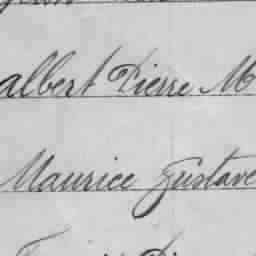 albert Pierre M
Maurice Gustave